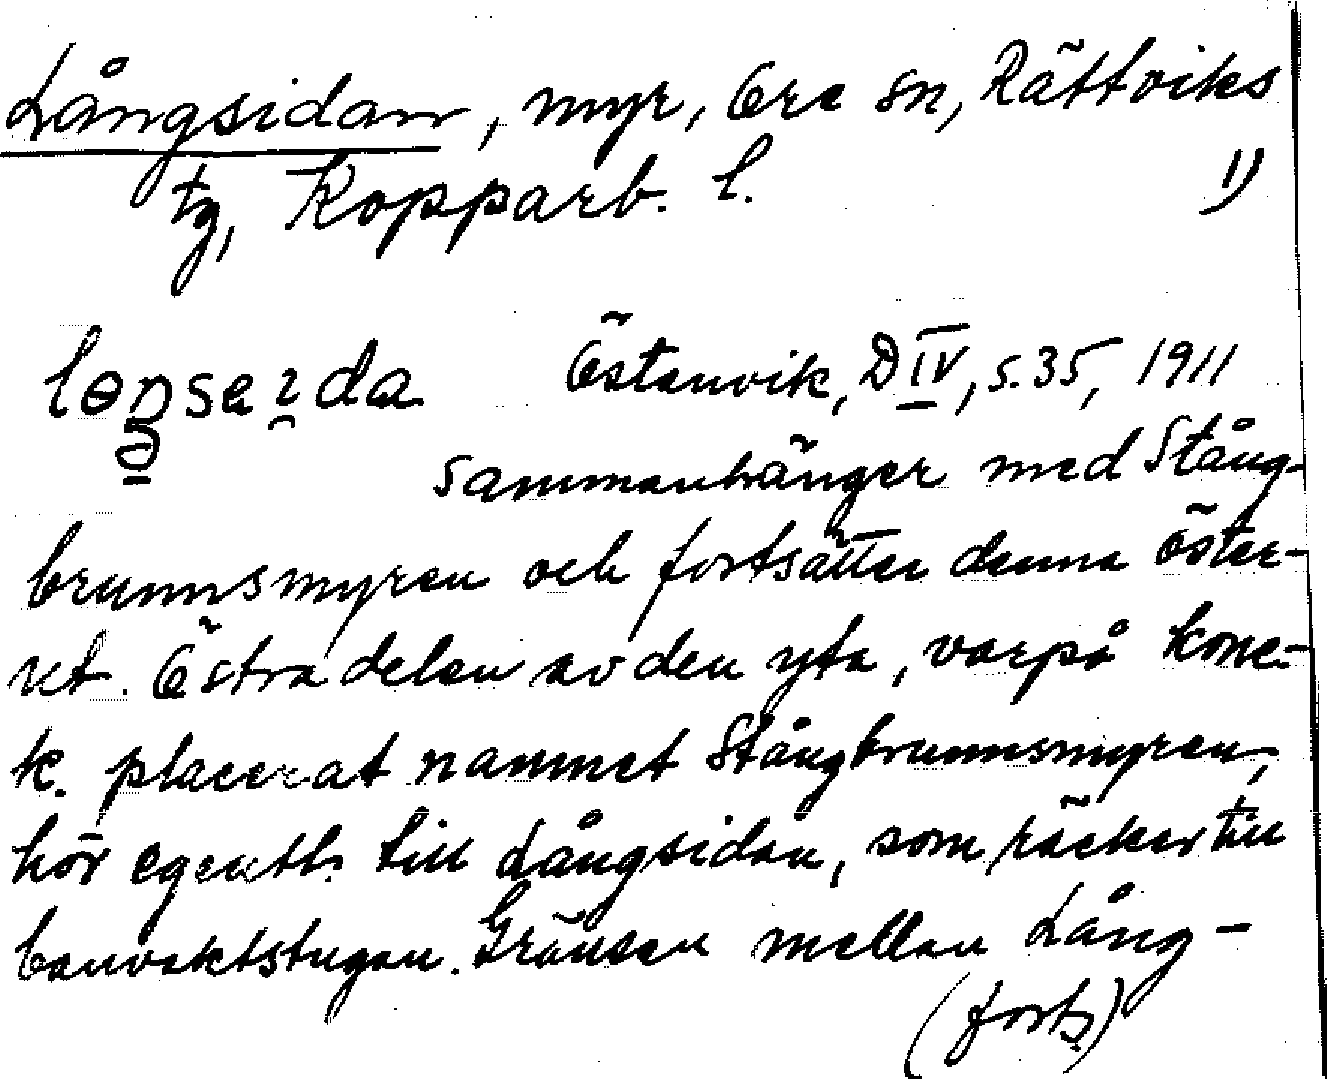 Långsidan, myr, Ore sn, Rättviks
tg, Kopparb. l. 1)
Östanvik, D IV, s. 35, 1911
sammanhänger med Stång-
brunnsmyren och fortsätter denna öster-
ut. Östra delen av den yta, varpå konc.-
k. placerat namnet Stångbrunnsmyren,
hör egentl. till Långsidan, som räcker till
banvaktstugan. Gränsen mellan Lång-
(forts.)